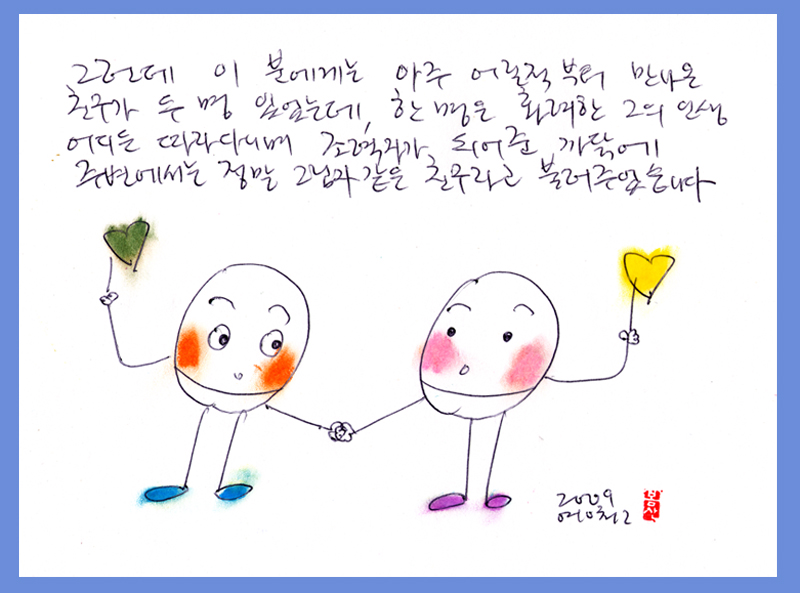 그런데 이 분에게는 아주 어릴적부터 만나온
친구가 두 명 있었는데, 한 명은 화려한 그의 인생
어디든 따라다니며 조력자가 되어준 까닭에
주변에서는 정말 그림자같은 친구라고 불러주었습니다
2009